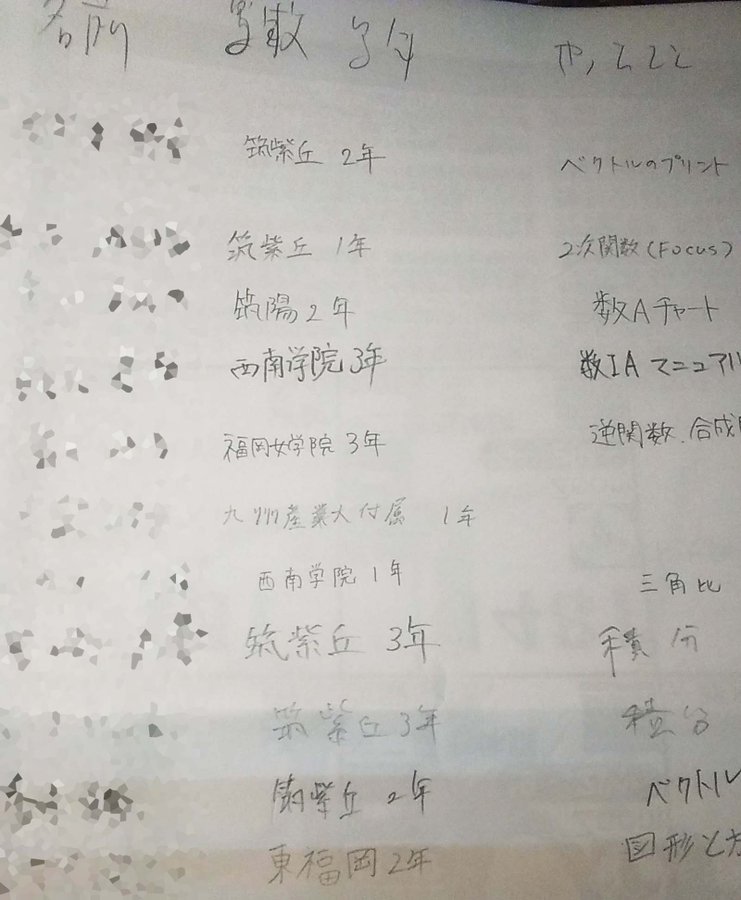 名前 学年 やったこと
筑紫丘 2年 ベクトルのプリント
筑紫丘 1年 2次関数(Focus)
筑陽 2年 数Aチャート
西南学院 3年 数IA マニュアル
福岡女学院 3年 逆関数、合成
九州産業大付属 1年
西南学院 1年 三角比
筑紫丘 3年 積分
筑紫丘 3年 積分
筑紫丘 2年 ベクトル
東福岡 2年 図形と方